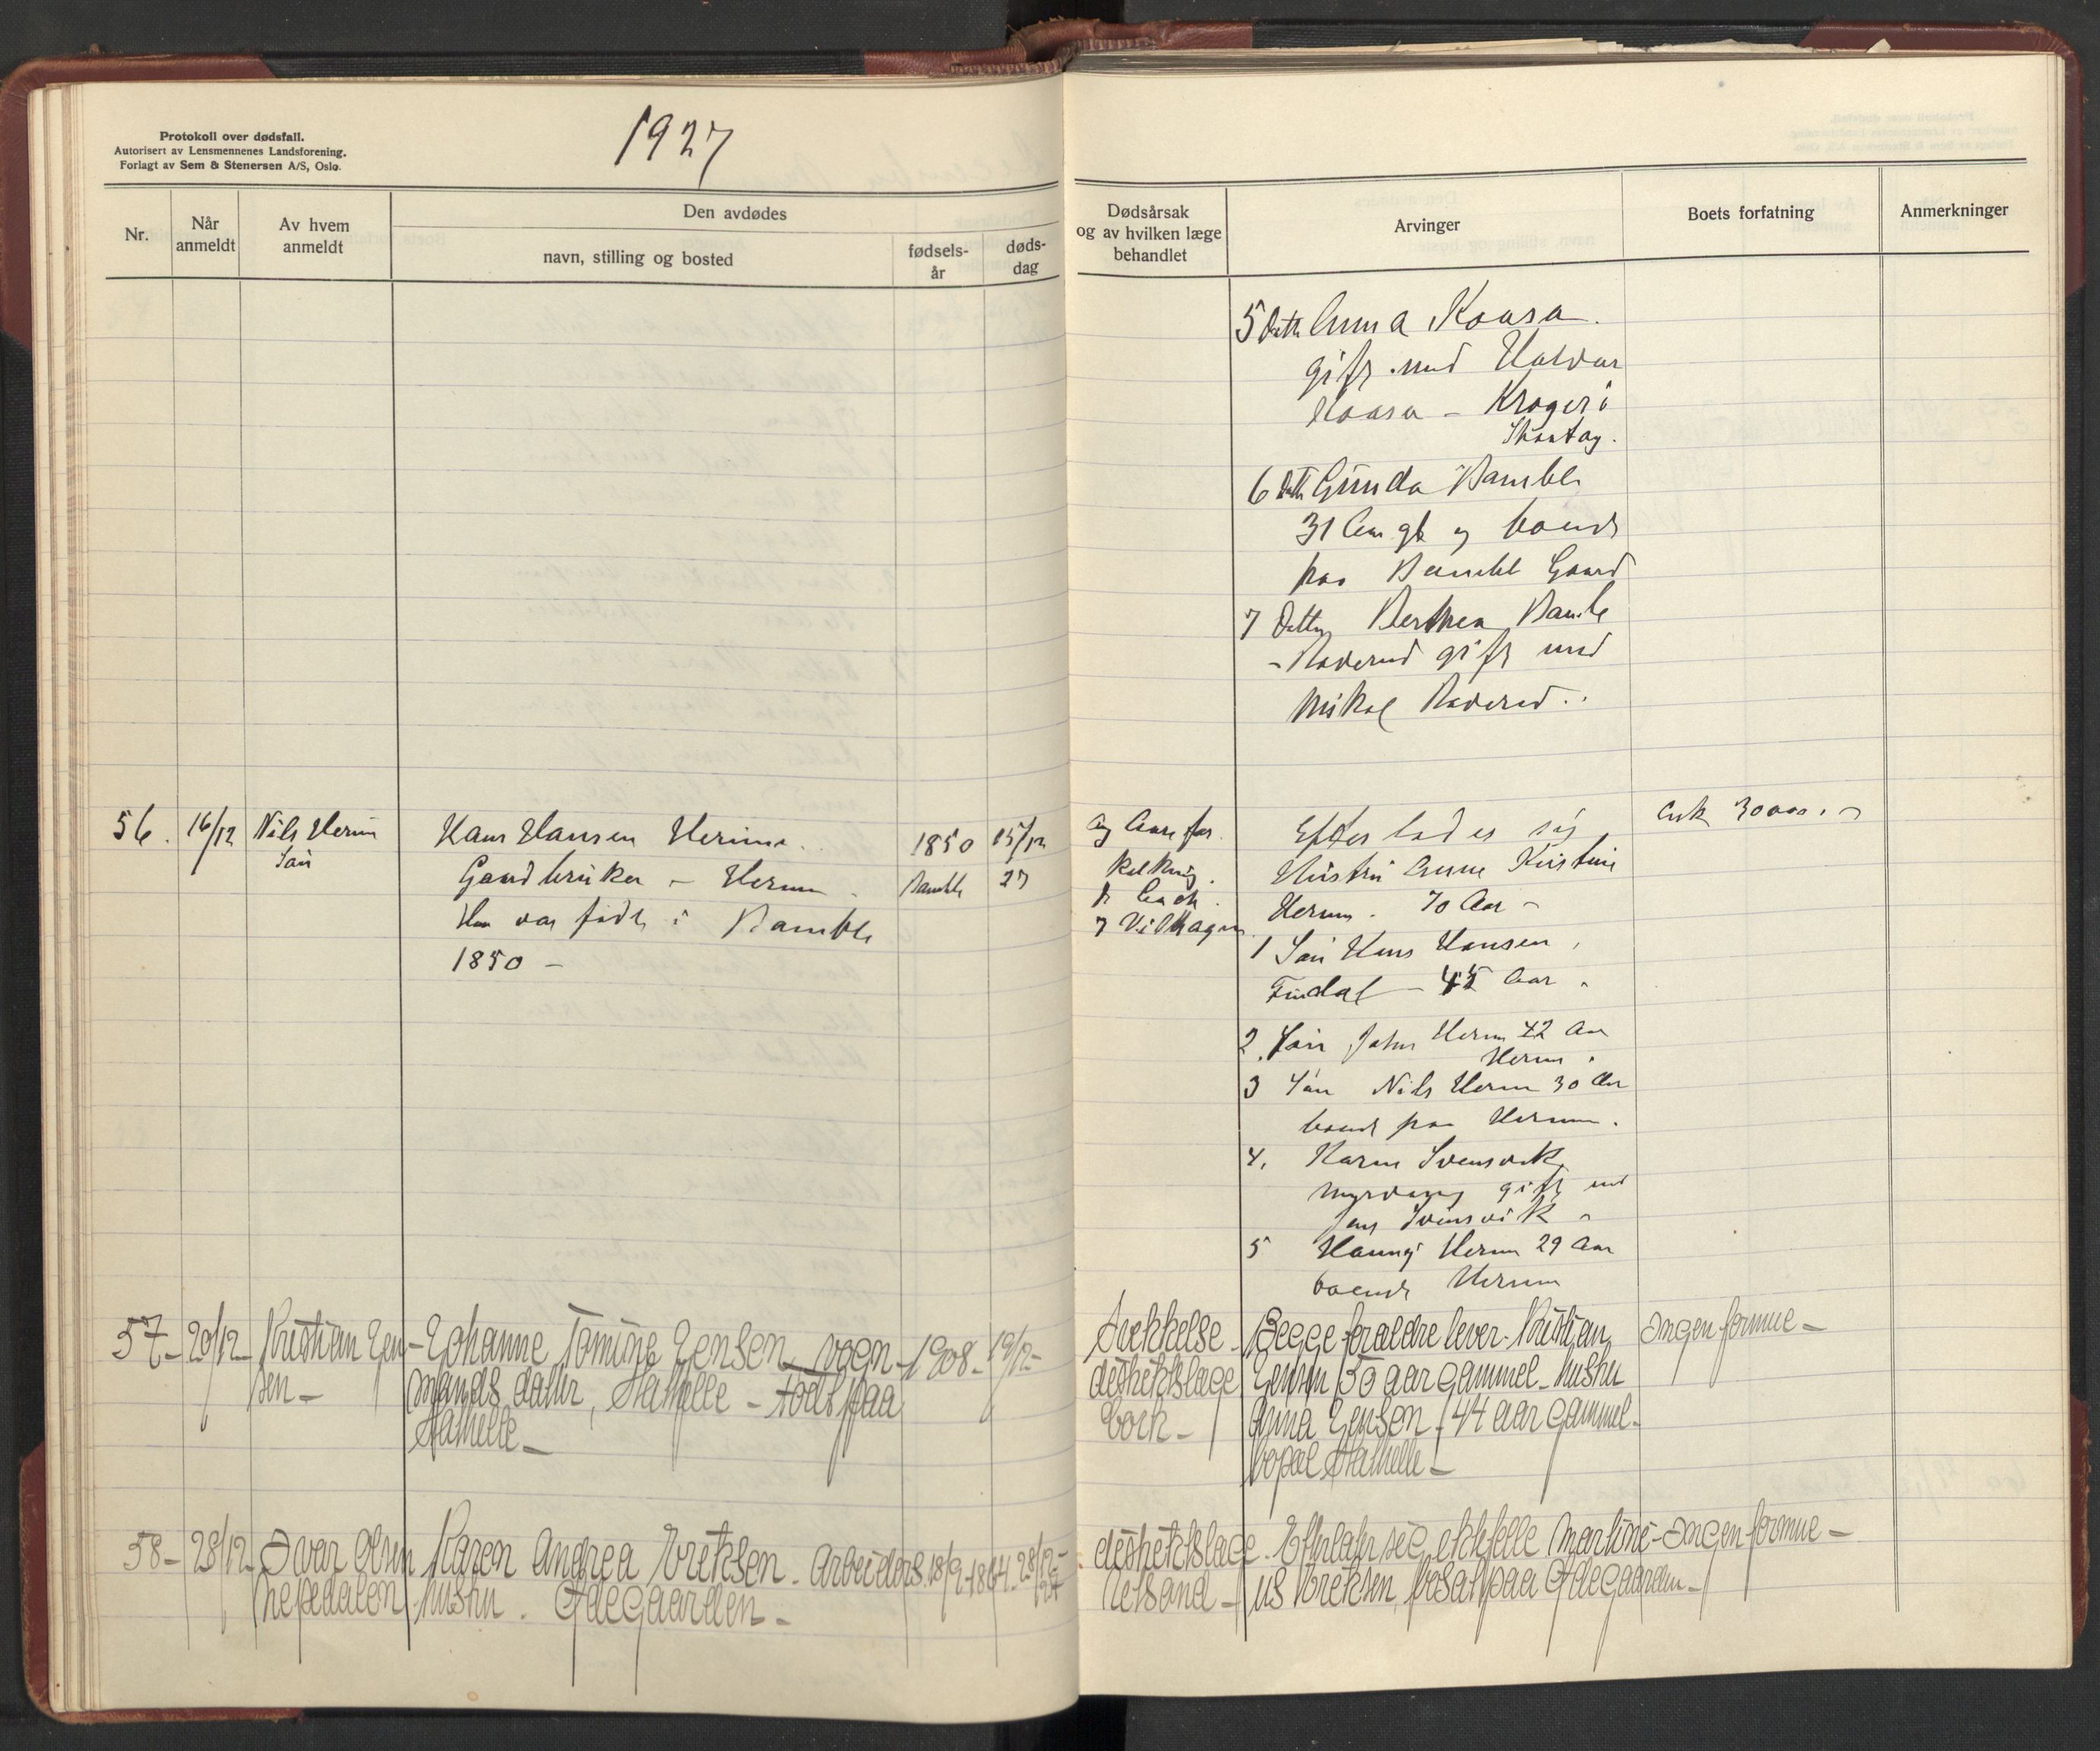 Protokoll over dødsfall.
Autorisert av Lensmennenes Landsforening.
Forlagt av Sem & Stenersen A/S, Oslo.
1927
Nr.
Når anmeldt
Av hvem anmeldt
Den avdødes
navn, stilling og bosted
fødsels-
år
døds-
dag
Dødsårsak
og av hvilken læge
behandlet
Arvinger
Boets forfatning
Anmerkninger
5 Datt Anna Kaasa.
gift med Halvor
Kaasa – Kragerø
6 Datt Gunda Bamble
31 Aar gl og boende
paa Bamble Gaard
7 Datter Berthea Bamble
gift med
Mikal
56. 16/12 Nils Herum
Søn
Hans Hansen Herum.
Gaardbruker – Herum
Han var født i Bamble
1850 –
1850
Bamble
15/12
27
Aarefor
kalkning.
Dr Cock.
Efterlader sig
Hustru Anne Kirstine
Herum. 70 Aar –
1 Søn Hans Hansen
Findal – 45 Aar.
2. Søn John Herum 42 Aar
Herum.
3 Søn Nils Herum 30 Aar
boende paa Herum.
4. Karen Svensvik
gift med
Jens Svensvik –
5 Herum 29 Aar
boende Herum
Cirk 30000. –
57 – 20/12 – Kristian Jen-
sen –
Johanne Tomine Jensen vogn-
mands datter, Stathelle – født paa
Stathelle –
1908 – 19/12 –
distriktslæge
Cock –
Begge foraldre lever – Kristian
Jensen 50 aar gammel – hustru
Anna Jensen, 44 aar gammel –
bopæl Stathelle –
Ingen formue –
58 – 28/12 – Ivar Olsen
Karen Andrea Eriksen. Arbeiders
hustru. Ødegaarden –
18/9-1864. 28/12 –
27
distriktslæge
Efterlater sig ektefelle Martini-
us Eriksen, bosat paa Ødegaarden –
Ingen formue –